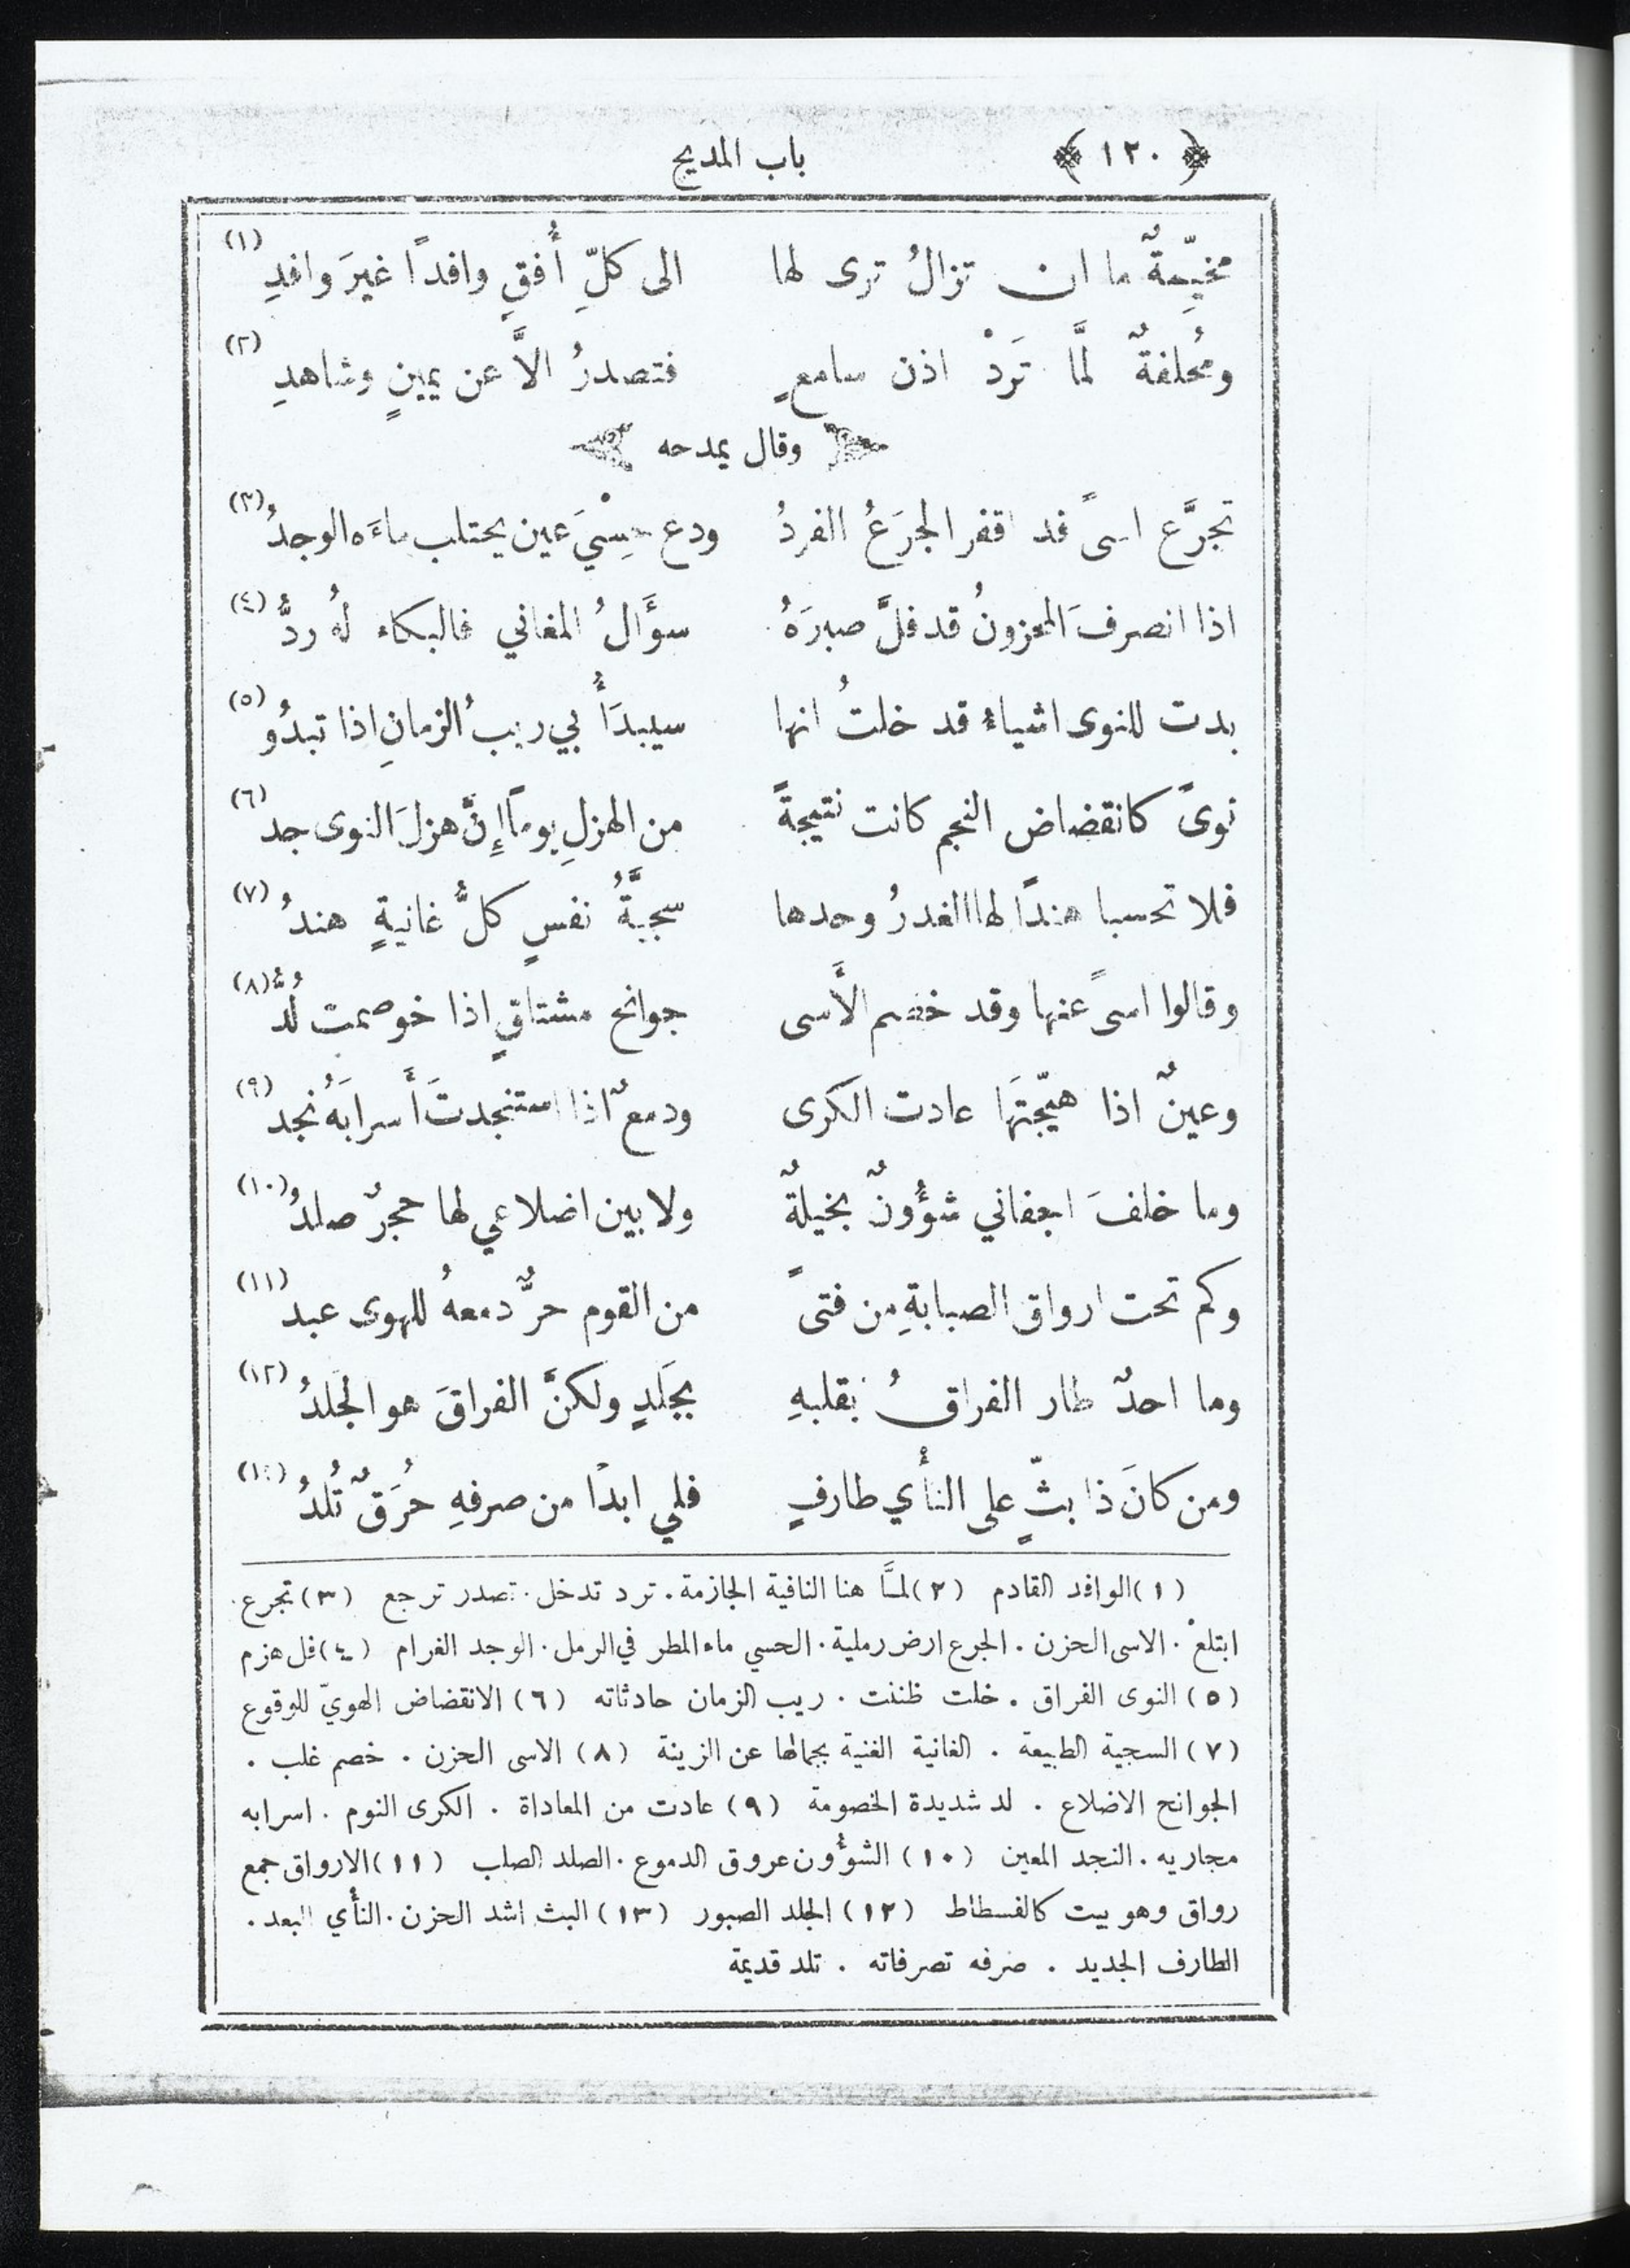 ﴿ ١٢٠ ﴾ باب المديح
مخيِّمةٌ ما ان تزالُ ترى لها الى كلِّ أُفقٍ وافداً غيرَ وافدِ (١)
ومُحلفةٌ لمَّا تَرَدْ اذن سامعٍ فتصدرُ الاَّ عن يمينٍ وشاهدِ (٢)
وقال يمدحه
تجرَّع اسىً قد اقفر الجرَعُ الفردُ ودع حِسْيَ عين يحتلب ماءَه الوجدُ (٣)
اذا انصرفَ المحزونُ قد فلَّ صبرَهُ سؤَالُ المغاني فالبكاء لهُ ردُّ (٤)
بدت للنوى اشياءُ قد خلتُ انها سيبدَأُ بي ريبُ الزمانِ اذا تبدُو (٥)
نوىً كانقضاض النجم كانت نتيجةً من الهزلِ يوماً إِنَّ هزلَ النوى جد (٦)
فلا تحسبا هنداً لها الغدرُ وحدها سجيَّةُ نفسٍ كلُّ غانيةٍ هندُ (٧)
وقالوا اسىً عنها وقد خصم الأَسى جوانح مشتاقٍ اذا خوصمت لُدُّ (٨)
وعينٌ اذا هيَّجتَهَا عادت الكرى ودمعٌ اذا استنجدتَ أَسرابَهُ نجد (٩)
وما خلفَ اجفاني شؤُونٌ بخيلةٌ ولا بين اضلاعي لها حجرٌ صلدُ (١٠)
وكم تحت ارواق الصبابةِ من فتىً من القوم حرٌّ دمعهُ للهوى عبد (١١)
وما احدٌ طار الفراقُ بقلبهِ بجَلَدٍ ولكنَّ الفراقَ هو الجَلدُ (١٢)
ومن كانَ ذا بثٍّ على النأْي طارفٍ فلي ابداً من صرفهِ حُرَقٌ تُلدُ
(١) الوافد القادم (٢) لمَّا هنا النافية الجازمة . ترد تدخل . تصدر ترجع (٣) تجرع
ابتلعْ . الاسى الحزن . الجرع ارض رملية . الحسي ماء المطر في الرمل . الوجد الغرام (٤) فل هزم
(٥) النوى الفراق . خلت ظننت . ريب الزمان حادثاته (٦) الانقضاض الهويّ للوقوع
(٧) السجية الطبيعة . الغانية الغنية بجمالها عن الزينة (٨) الاسى الحزن . خصم غلب .
الجوانح الاضلاع . لد شديدة الخصومة (٩) عادت من المعاداة . الكرى النوم . اسرابه
مجاريه . النجد المعين (١٠) الشوُّون عروق الدموع . الصلد الصلب (١١) الارواق جمع
رواق وهو بيت كالفسطاط (١٢) الجلد الصبور (١٣) البث اشد الحزن . النأي البعد .
الطارف الجديد . صرفه تصرفاته . تلد قديمة